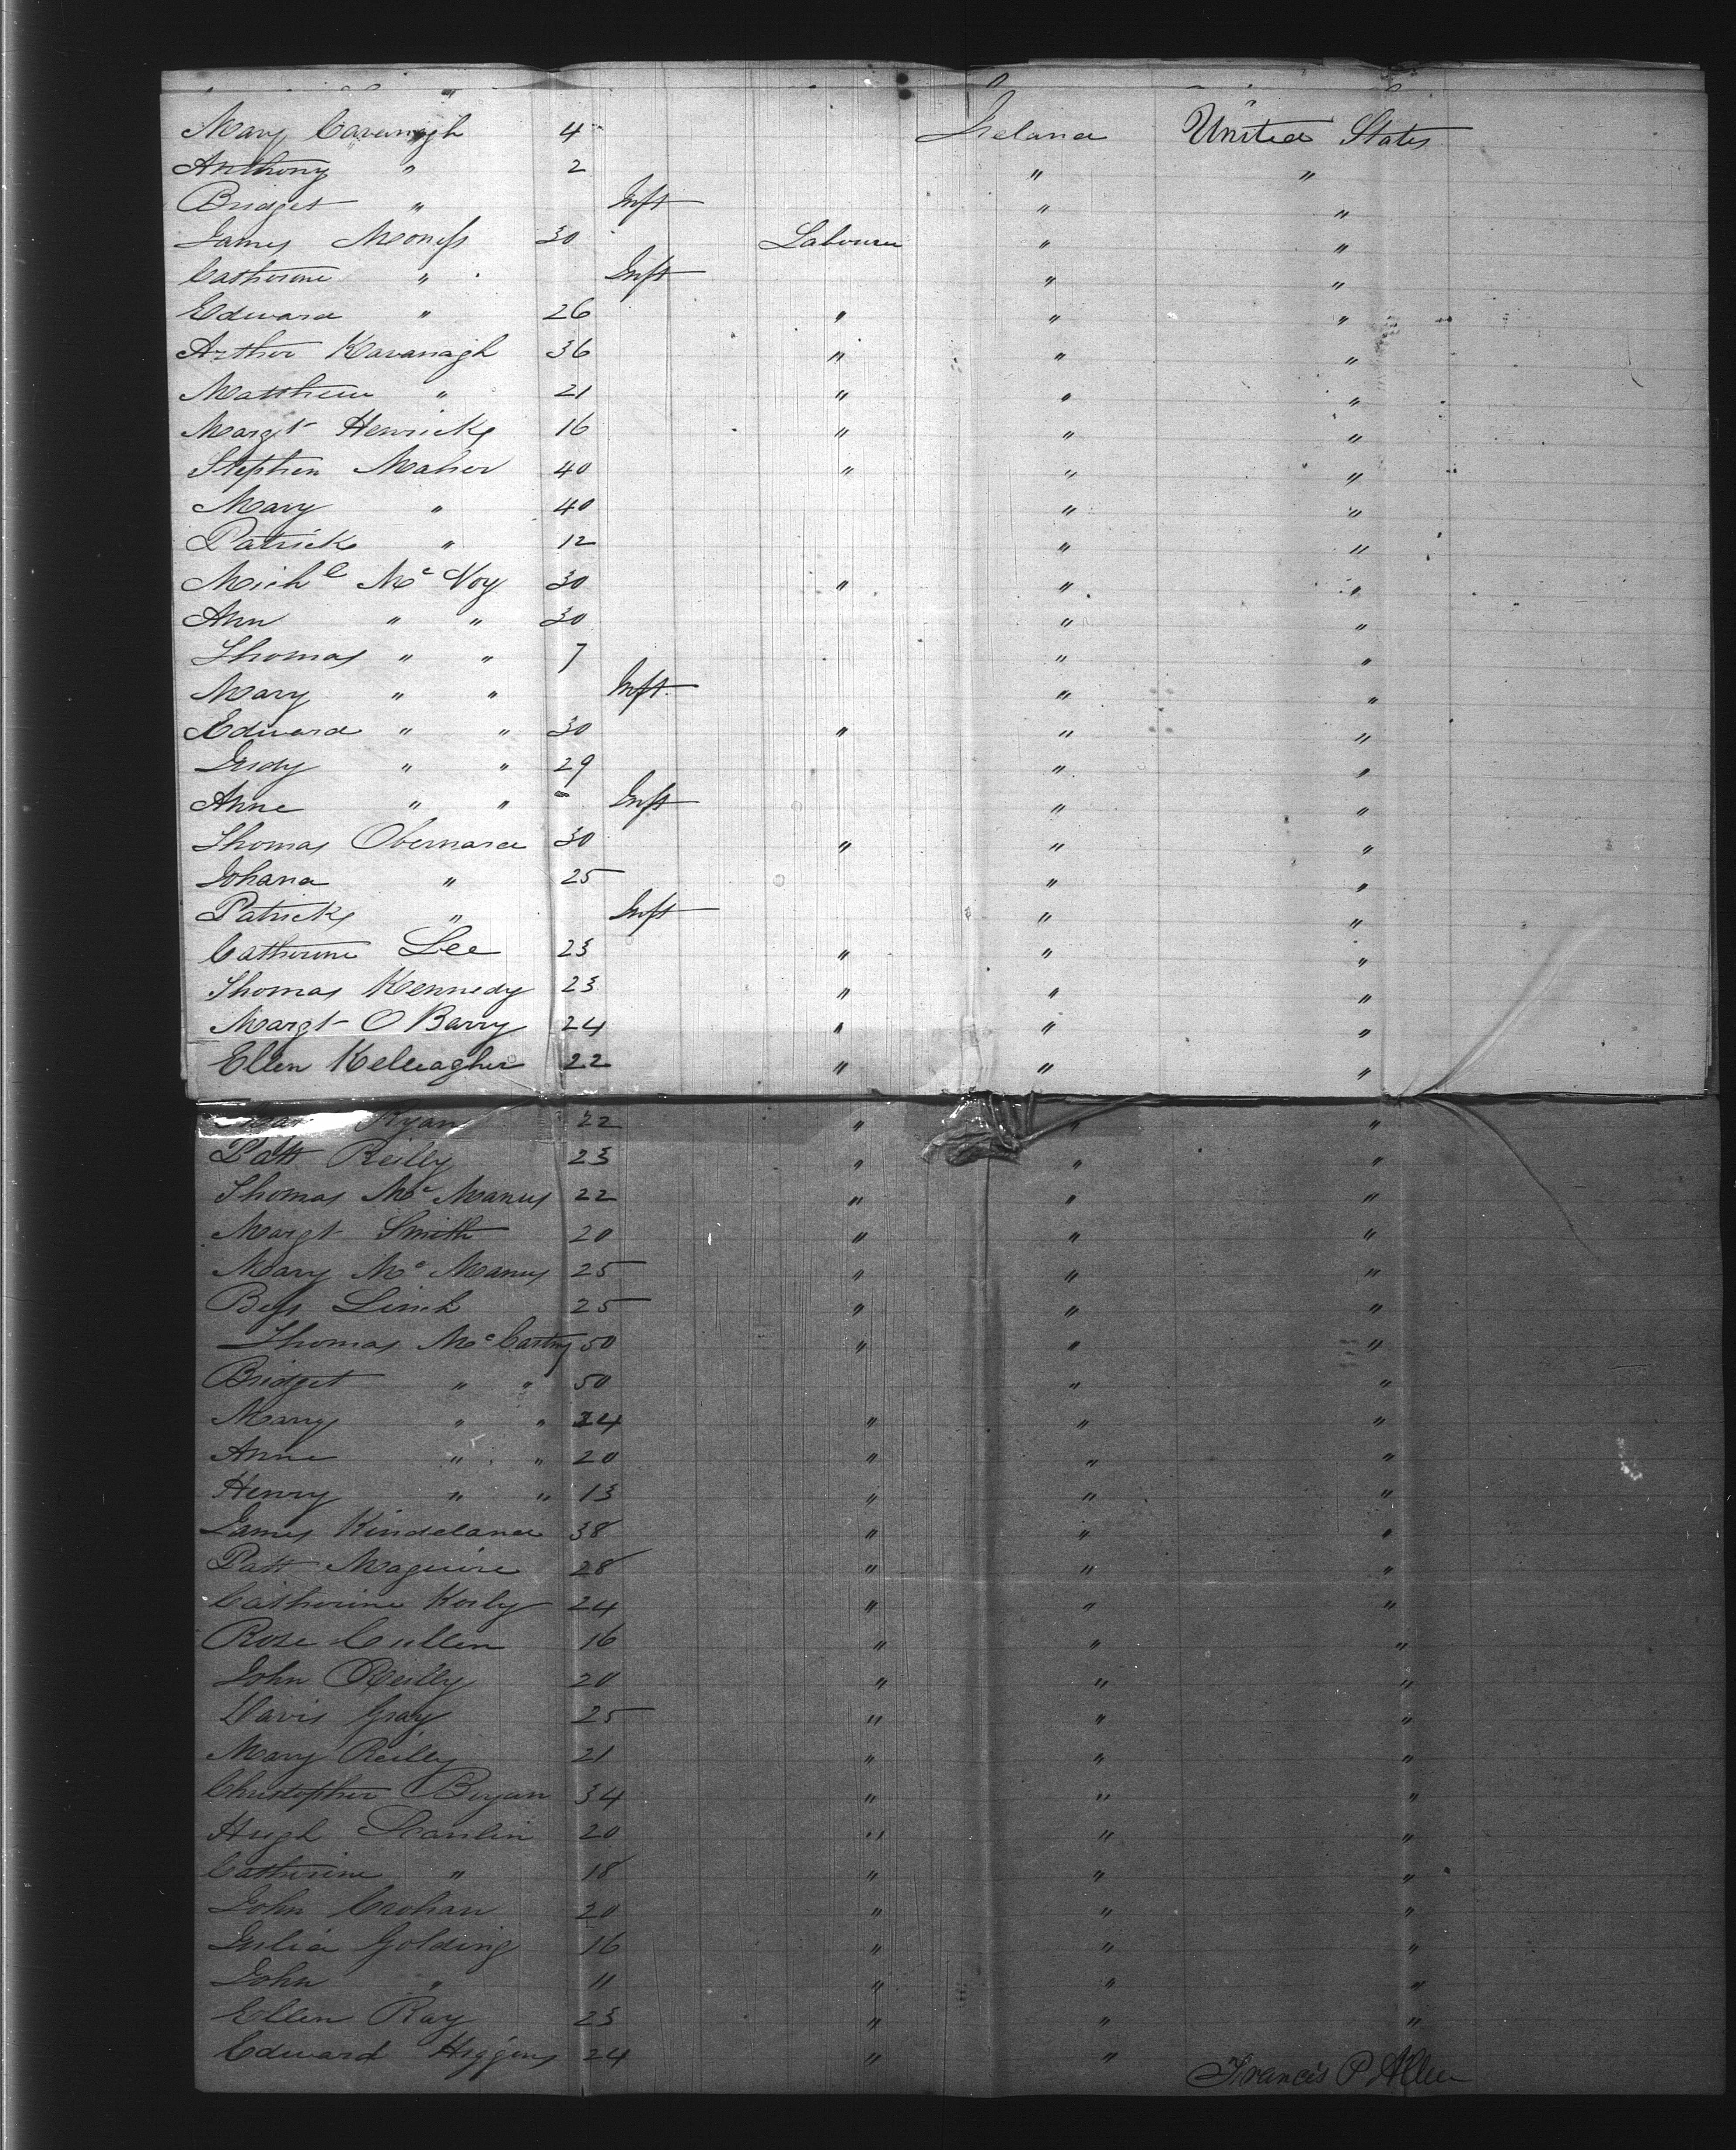 Mary Cavanagh 4 Ireland United States
Anthony " 2 " "
Bridget " Inft " "
James Moness 30 Labourer " "
Catherine " Inft " "
Edward " 26 " " "
Arthur Kavanagh 36 " " "
Matthew " 21 " " "
Margt Henricks 16 " " "
Stephen Maher 40 " " "
Mary " 40 " "
Patrick " 12 " "
Michl McVoy 30 " " "
Ann " " 30 " "
Thomas " " 7 " "
Mary " " Inft " "
Edward " " 30 " " "
Judy " " 29 " "
Anne " " - Inft " "
Thomas 30 " " "
Johana " 25 " "
Patrick " Inft " "
Catherine Lee 23 " " "
Thomas Kennedy 23 " " "
Margt O Barry 24 " " "
Ellen Kelleagher 22 " " "
Ryan 22 " " "
Patt Reilly 23 " " "
Thomas McManus 22 " " "
Margt Smith 20 " " "
Mary McManus 25 " " "
Bess Linch 25 " " "
Thomas McCarthy 50 " " "
Bridget " " 50 " "
Mary " " 24 " " "
Anne " " 20 " " "
Henry " " 13 " " "
James Kindeland 38 " " "
Patt Maguire 28 " " "
Catherine 24 " " "
Rose Cullen 16 " " "
John Reilly 20 " " "
Davis Gray 25 " " "
Mary Reilly 21 " " "
Christopher 34 " " "
Hugh Scanlin 20 " " "
Catherine " 18 " " "
John Crohan 20 " " "
Julia Golding 16 " " "
John " 11 " " "
Ellen Ray 23 " " "
Edward Higgins 24 " "
Francis P Allen